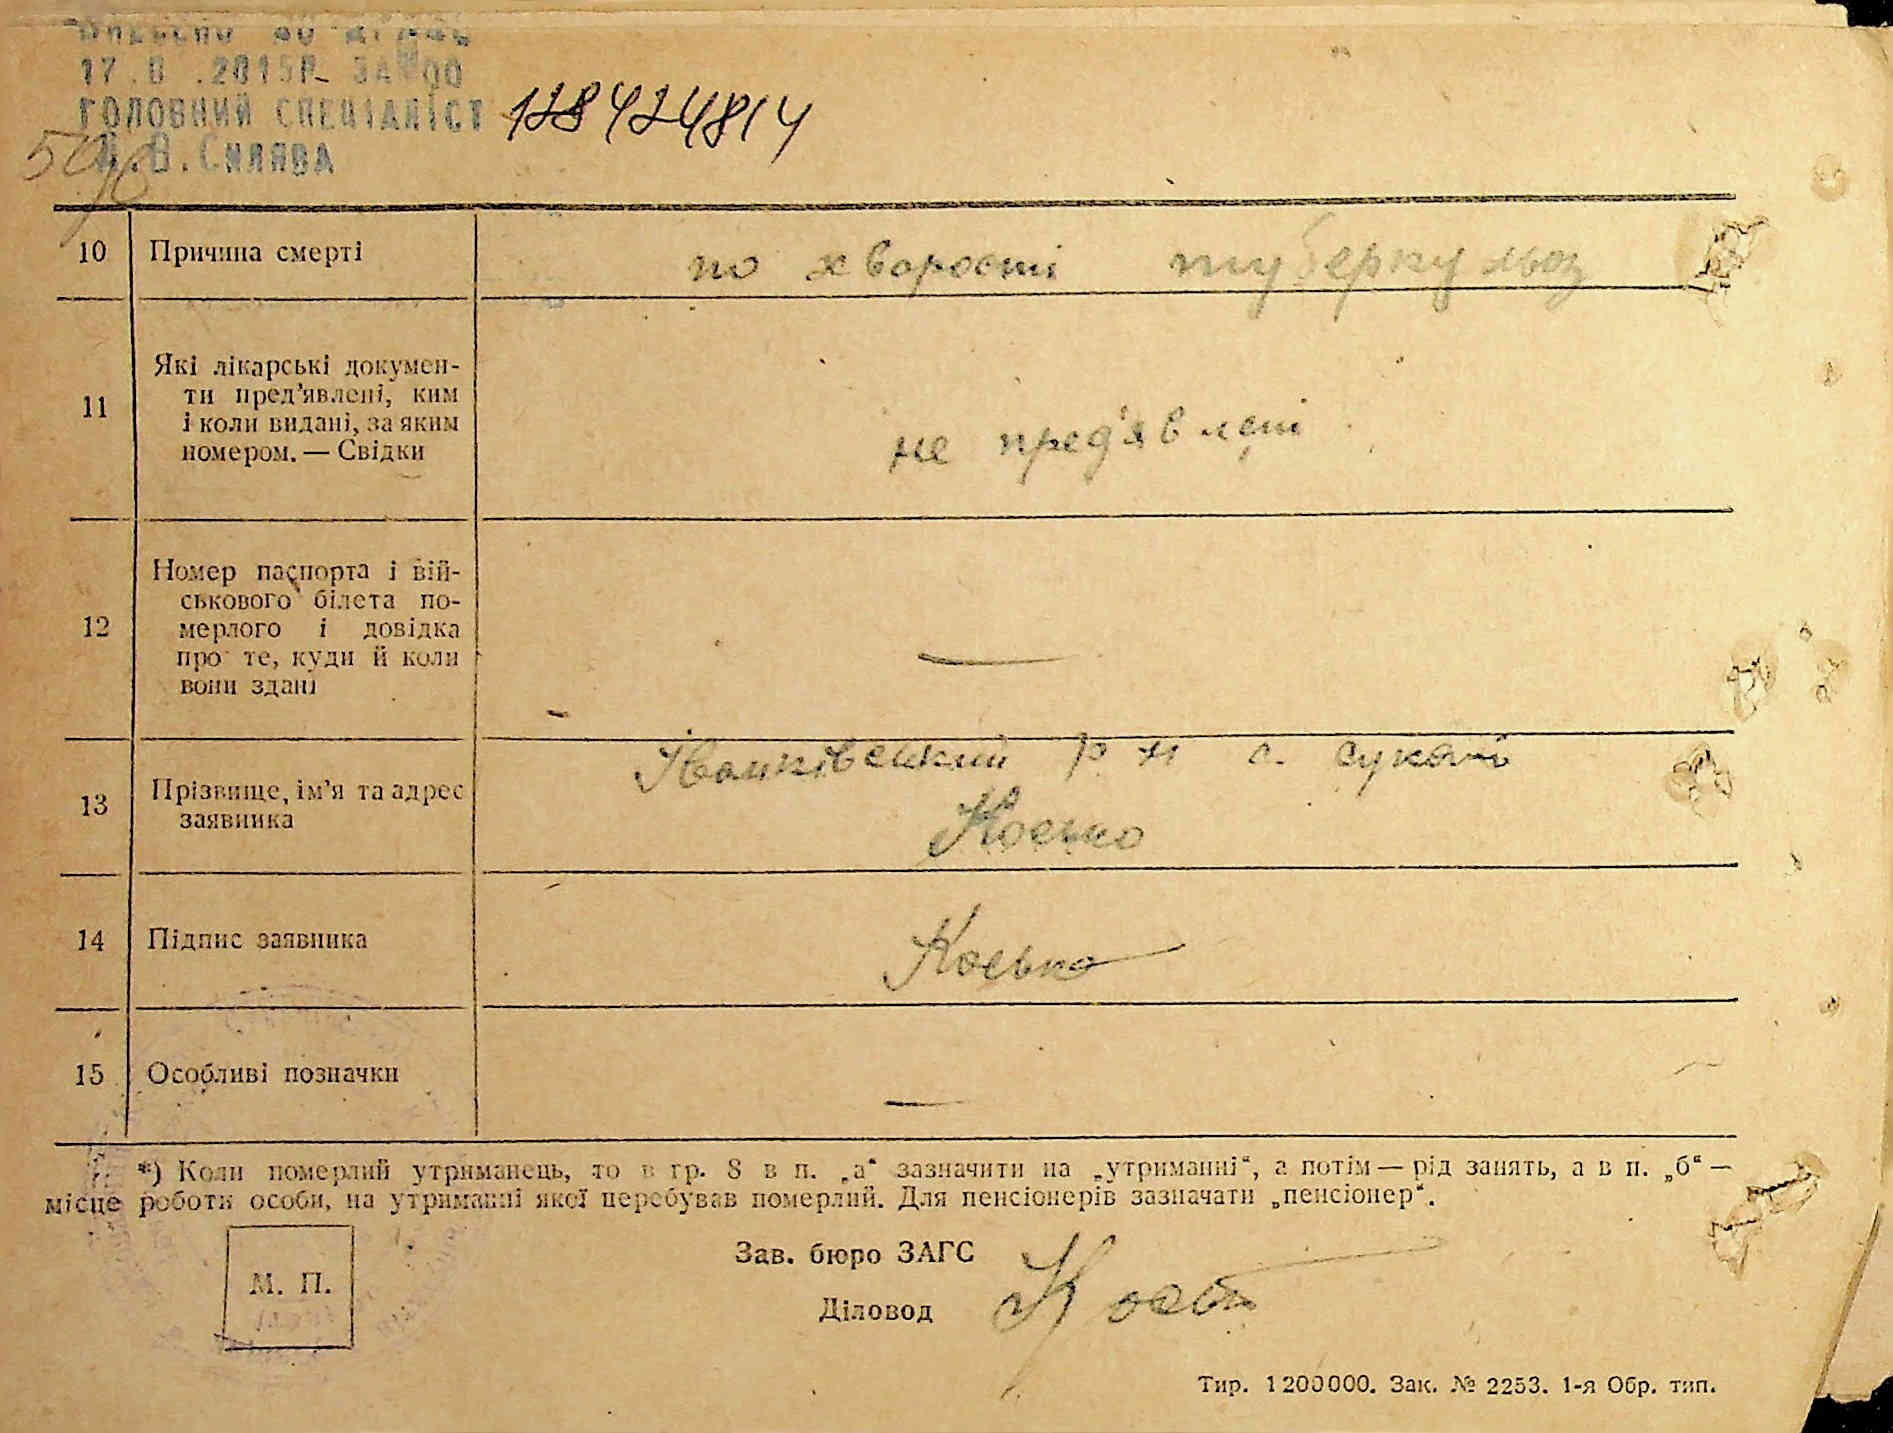 Внесено до ДРАЦС
17.8.2015р. ЗА №00 128424814
ГОЛОВНИЙ СПЕЦІАЛІСТ
В.Силява
10 Причина смерті по хворості туберкульоз
11 Які лікарські докумен-
ти пред’явлені, ким
і коли видані, за яким
номером. — Свідки
не пред'явлені
12 Номер паспорта і вій-
ськового білета по-
мерлого і довідка
про те, куди й коли
вони здані
—
Іванківський р н с. Сукачі
13 Прізвище, ім’я та адрес
заявника
Косько
14 Підпис заявника Косько
15 Особливі позначки —
*) Коли померлий утриманець, то в гр. 8 в п. „а“ зазначити на „утриманні“, а потім — рід занять, а в п. „б“ —
місце роботи особи, на утриманні якої перебував померлий. Для пенсіонерів зазначати „пенсіонер“.
Зав. бюро ЗАГС
М. П.
Діловод
Тир. 1200000. Зак. № 2253. 1-я Обр. тип.